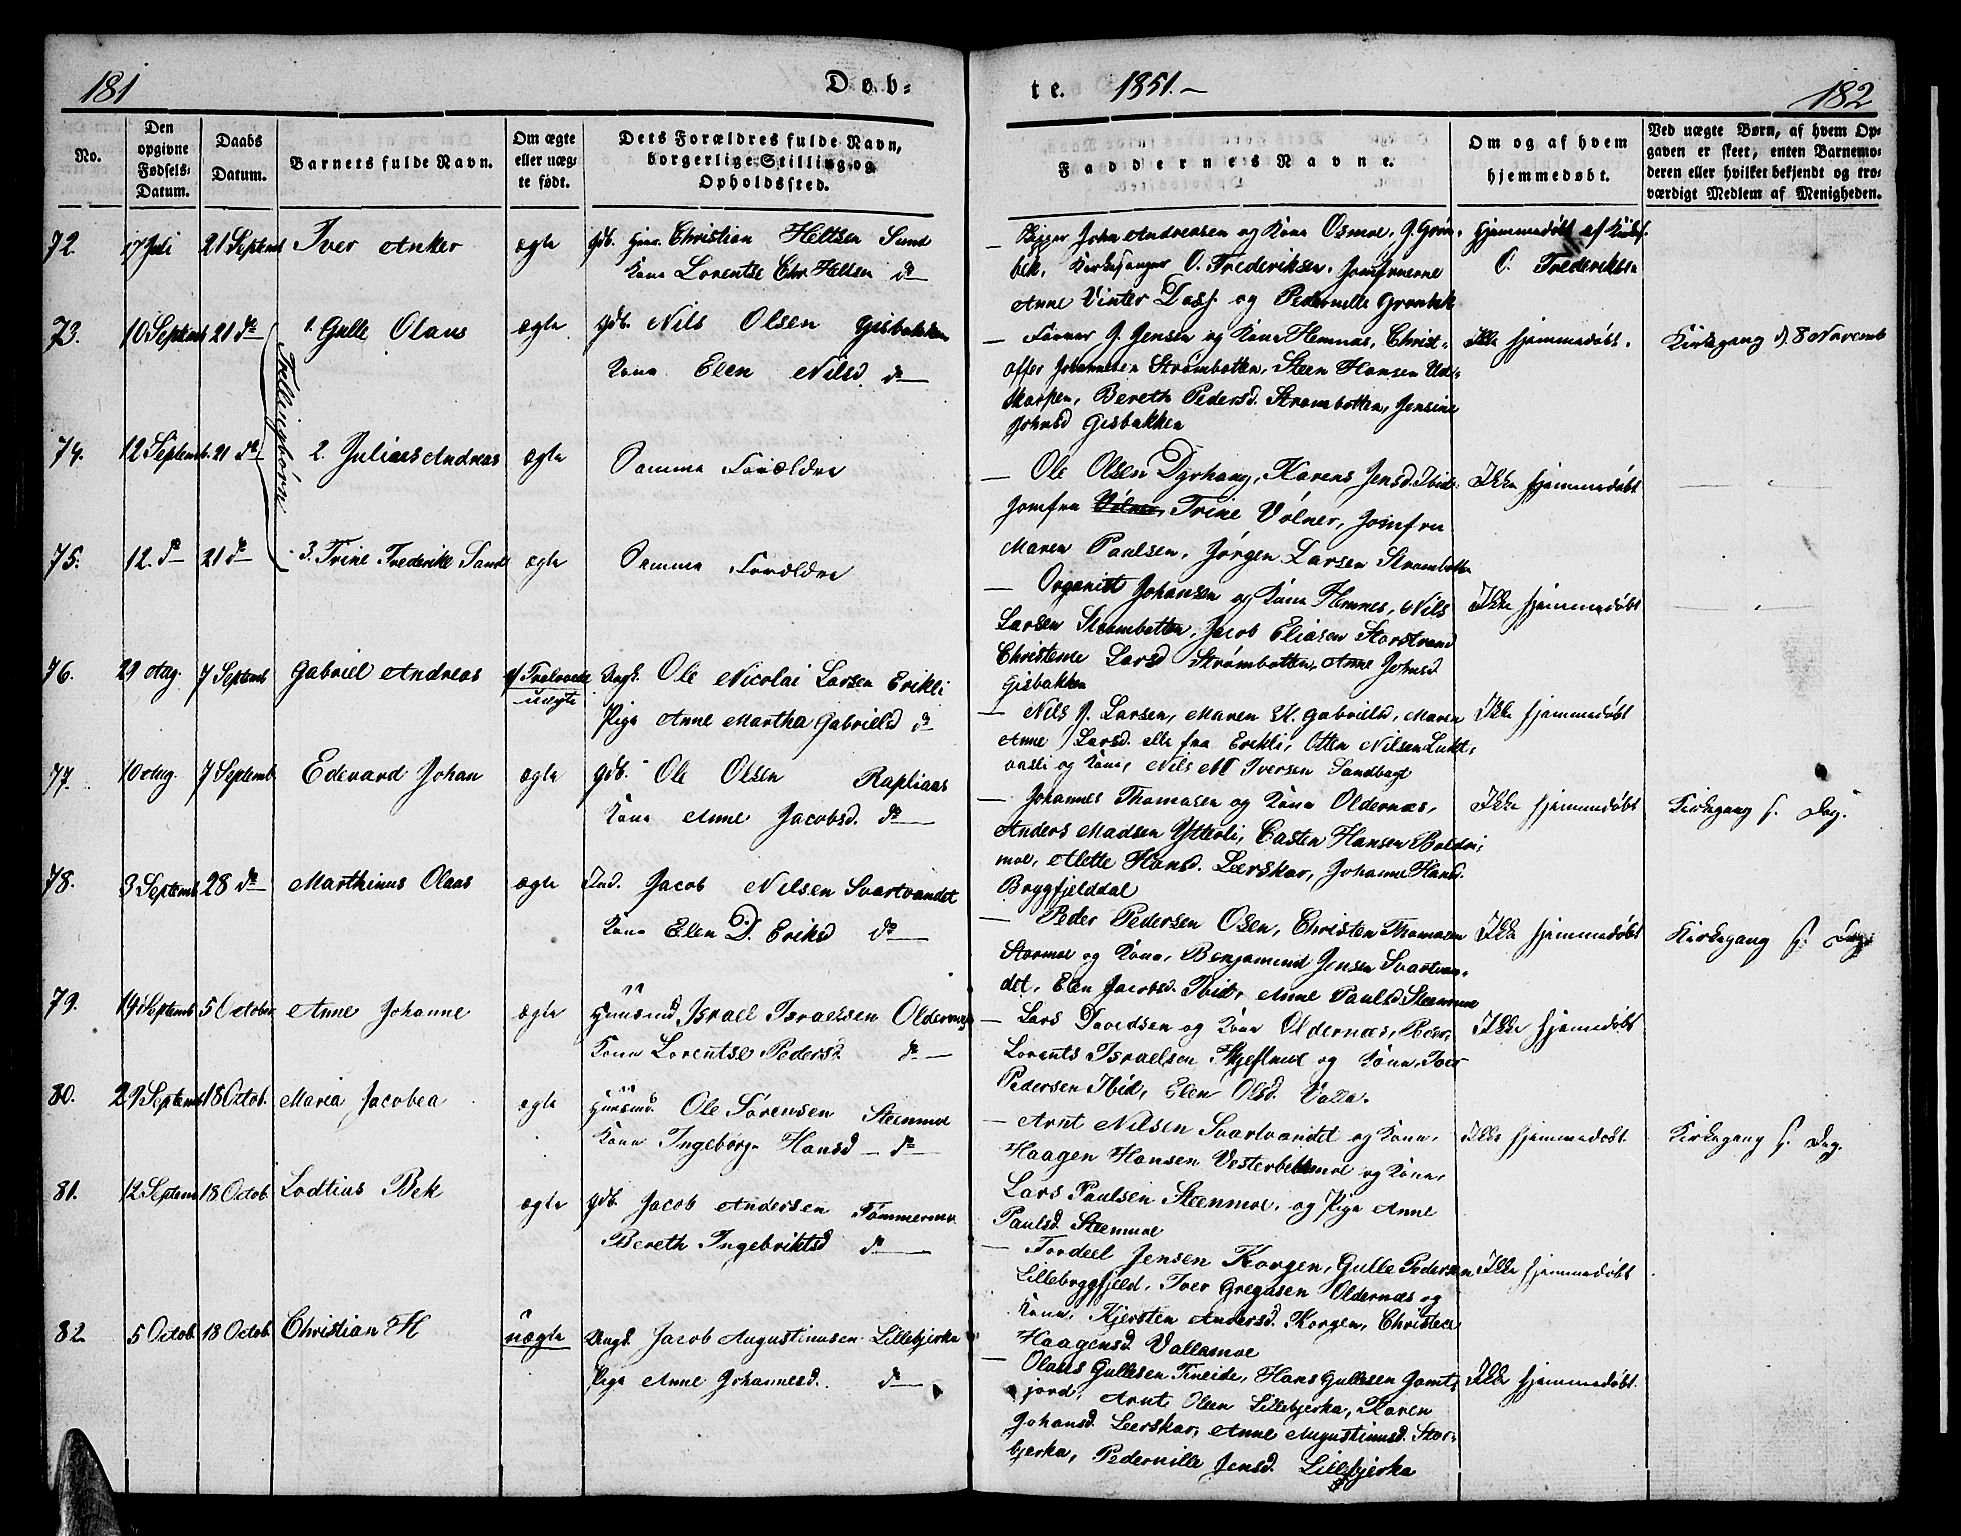 181
Døb-
te. 1851.
182
No.
Den opgivne Fødsels-Datum.
Daabs Datum.
Barnets fulde Navn.
Om ægte eller uæg-te født.
Dets Forældres fulde Navn, borgerlige Stilling og Opholdssted.
Faddernes Navne.
Om og af hvem hjemmedøbt.
Ved uægte Børn, af hvem Op-gaven er skeet, enten Barnemo-deren eller hvilket bekjendt og tro-værdigt Medlem af Menigheden.
72. 17 Juli 21 Septemb Iver Anker ægte gdb. Christian Heltzen Sund
Kone Lorentse Chr. Heltzen do
John Andreasen og Kone Osmoe, J. Grøn-
bek, Kirkesanger O. Frederiksen, Jomfruerne
Anne Vinter Dass. og Pedernelle Grønbek
hjemmedøbt af Kirkes.
O. Frederiksen
73. 10 Septemb 21 do 1. Gulle Olaus ægte gdb. Nils Olsen Gisbakken
Kone Elen Nilsd. do
Trillingbørn
Farver J. Jensen og Kone Hemnæs, Christ-
offer Johannesen Strømbotten, Steen Hansen Ud-
skarpen, Bereth Pedersd. Strømbotten, Jensine
Johnsd Gisbakken
Ikke hjemmedøbt. Kirkegang d. 8 Novemb
74. 12 Septemb. 21 do 2. Julius Andreas ægte Samme Forældre
Ole Olsen Dyrhaug, Karens Jensd. Ibid.
Jomfru Vólner, Trine Vólner, Jomfru
Maren Paulsen, Jørgen Larsen Strømbotten
Ikke hjemmedøbt
75. 12. do 21 do 3. Trine Frederike Sand ægte Samme Forældre
Organist Johansen og Kone Hemnes, Nils
Larsen Strømbotten, Jacob Eliasen Storstrand
Christense Larsd Strømbotten, Anne Johnsd
Gisbakken
Ikke hjemmedøbt
76. 29 Aug. 7 Septemb Gabriel Andreas uægte Ungk. Ole Nicolai Larsen Erikli
Pige Anne Martha Gabrielsd do
Nils J. Larsen, Maren M. Gabrielsd, Maren
Anne Larsd. alle fra Erikli, Otten Nilsen Lukt-
vasli og Kone, Nils M Iversen Sandbagt
Ikke hjemmedøbt
77. 10 Aug. 7 Septemb Edevard Johan ægte gdb. Ole Olsen Rapliaas
Kone Anne Jacobsd. do
Johannes Thomasen og Kone Oldernæs,
Anders Madsen Ytterli, Casten Hansen Boldri-
moe, Alette Hansd. Leerskar, Johanne Hansd.
Bryggfjelddal
Ikke hjemmedøbt Kirkegang s. Dag.
78. 3 Septemb 28 do Marthinus Olaus ægte Ind. Jacob Nilsen Svartvandet
Kone Elen D. Eriksd do
Peder Pedersen Osen, Christen Thomasen
Stormoe og Kone, Benjamind Jensen Svartvan-
det, Elen Jacobsd. Ibid, Anne Paulsd Steenmoe
Ikke hjemmedøbt Kirkegang s. Dag
79. 14 Septemb 5 October Anne Johanne ægte Huusmd Israel Israelsen Oldernæs
Kone Lorentse Pedersd. do
Lars Davidsen og Kone Oldernæs, Peder
Lorents Israelsen Skjeflmoe og Kone, Iver
Pedersen Ibid, Elen Olsd. Valla.
Ikke hjemmedøbt
80. 29 Septemb 18 Octob. Maria Jacobea ægte Huusmd. Ole Sørensen Steenmoe
Kone Ingeborg Hansd do
Arnt Nilsen Svartvandet og Kone,
Haagen Hansen Vesterbekmoe og Kone,
Lars Paulsen Steenmoe, og Pige Anne
Paulsd. Steenmoe
Ikke hjemmedøbt. Kirkegang s. Dag.
81. 12 Septemb 18 Octob. Lodtius Bek ægte gdb. Jacob Andersen Tømmermoe
Bereth Ingebriktsd do
Tordeel Jensen Korgen, Gulle Pedersen
Lillebryggfjeld, Iver Gregusen Oldernæs og
Kone, Kjersten Andersd. Korgen, Christeel
Haagensd. Vallamoe
Ikke hjemmedøbt
82 5 Octob. 18 Octob. Christian H uægte Ungk. Jacob Augustinusen Lillebjerka
Pige Anne Johannesd. do
Olaus Gullesen Fineide, Hans Gullesen Jamt-
jord, Arnt Olsen Lillebjerka, Karen
Johansd. Leerskar, Anne Augustinusd. Stor-
bjerka, Pedernille Jensd. Lillebjerka
Ikke hjemmedøbt.